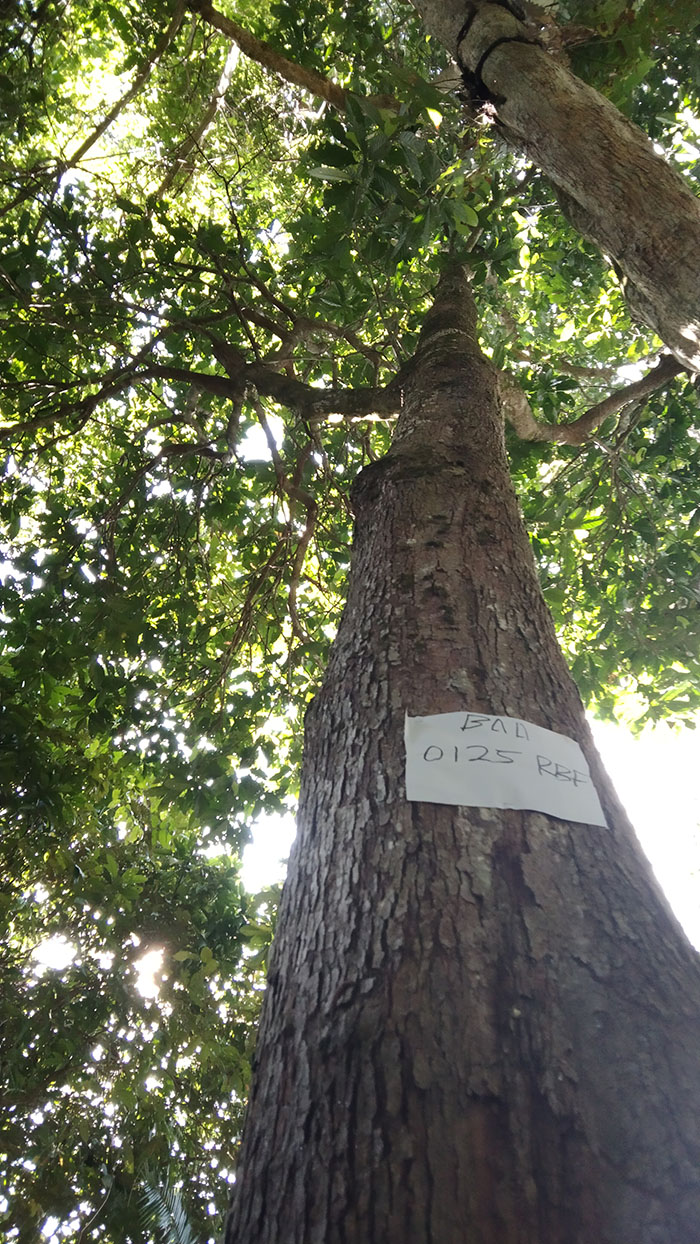 BAA
0125 RBF